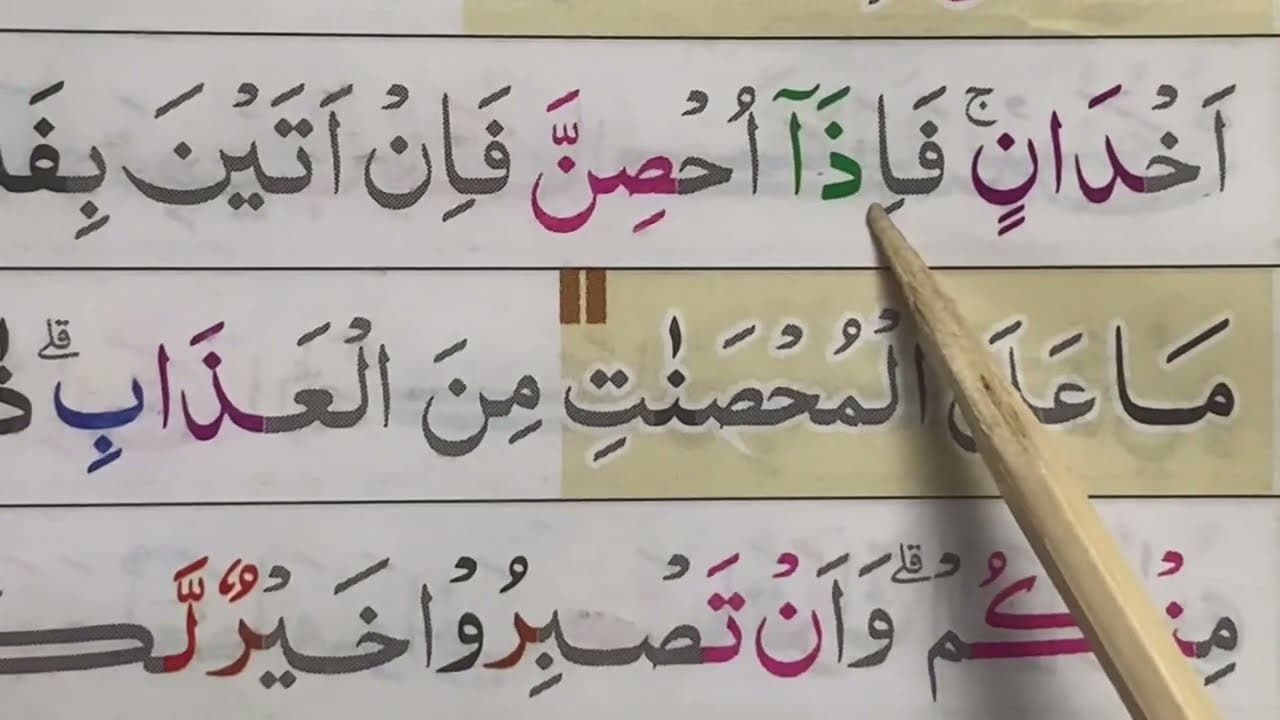 اَخْدَانٍ ۚ فَاِذَآ اُحْصِنَّ فَاِنْ اَتَيْنَ
مَا عَلَى الْمُحْصَنٰتِ مِنَ الْعَذَابِ ؕ
مِنْكُمْ ؕ وَاَنْ تَصْبِرُوْا خَيْرٌ